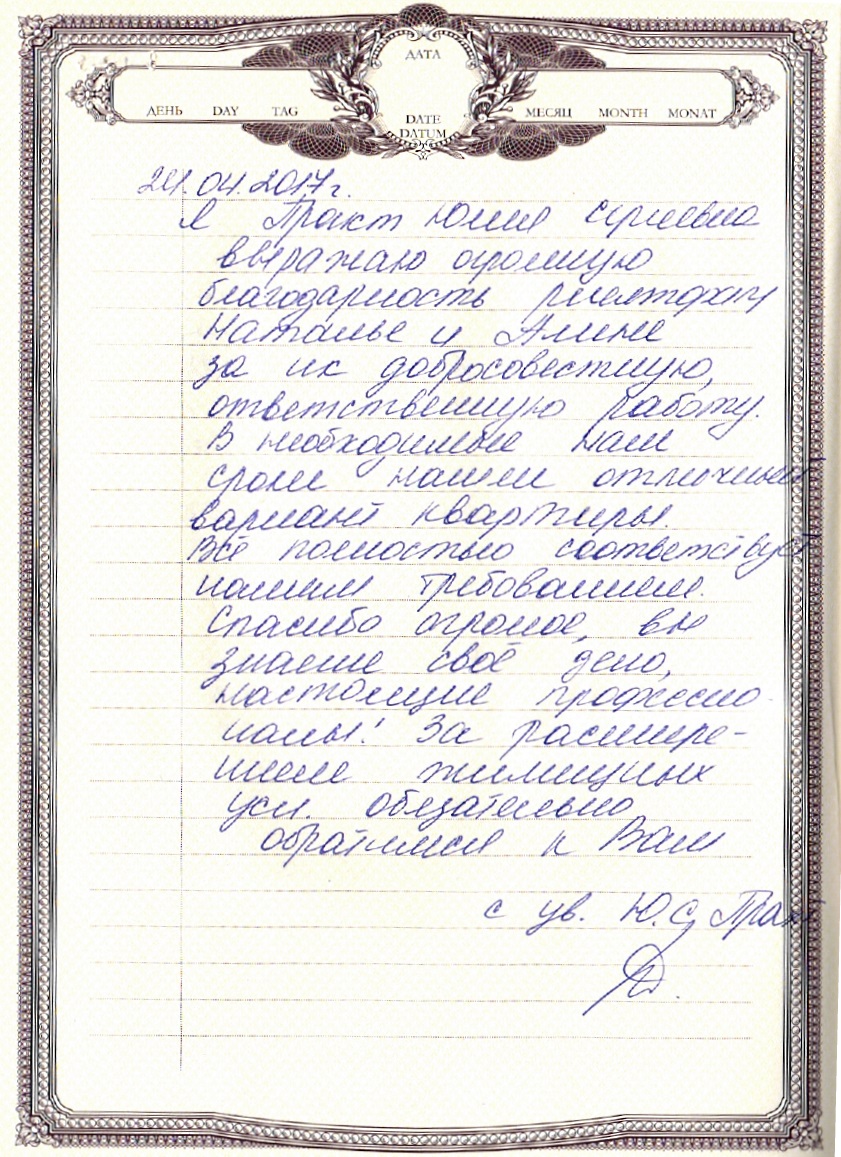 ДАТА
ДЕНЬ DAY TAG
DATE
DATUM
МЕСЯЦ MONTH MONAT
24.04.2017г.
Я Практ Юлия Сергеевна
выражаю огромную
благодарность
Наталье и Алине
за их добросовестную,
ответственную работу.
В необходимые нам
сроки нашли отличный
вариант квартиры.
Всё полностью соответствует
нашим требованием.
Спасибо огромное, вы
знаете своё дело,
настоящие професио-
налы! За расшире-
нием жилищных
усл. обязательно
обратимся к Вам
с ув. Ю.С. Практ